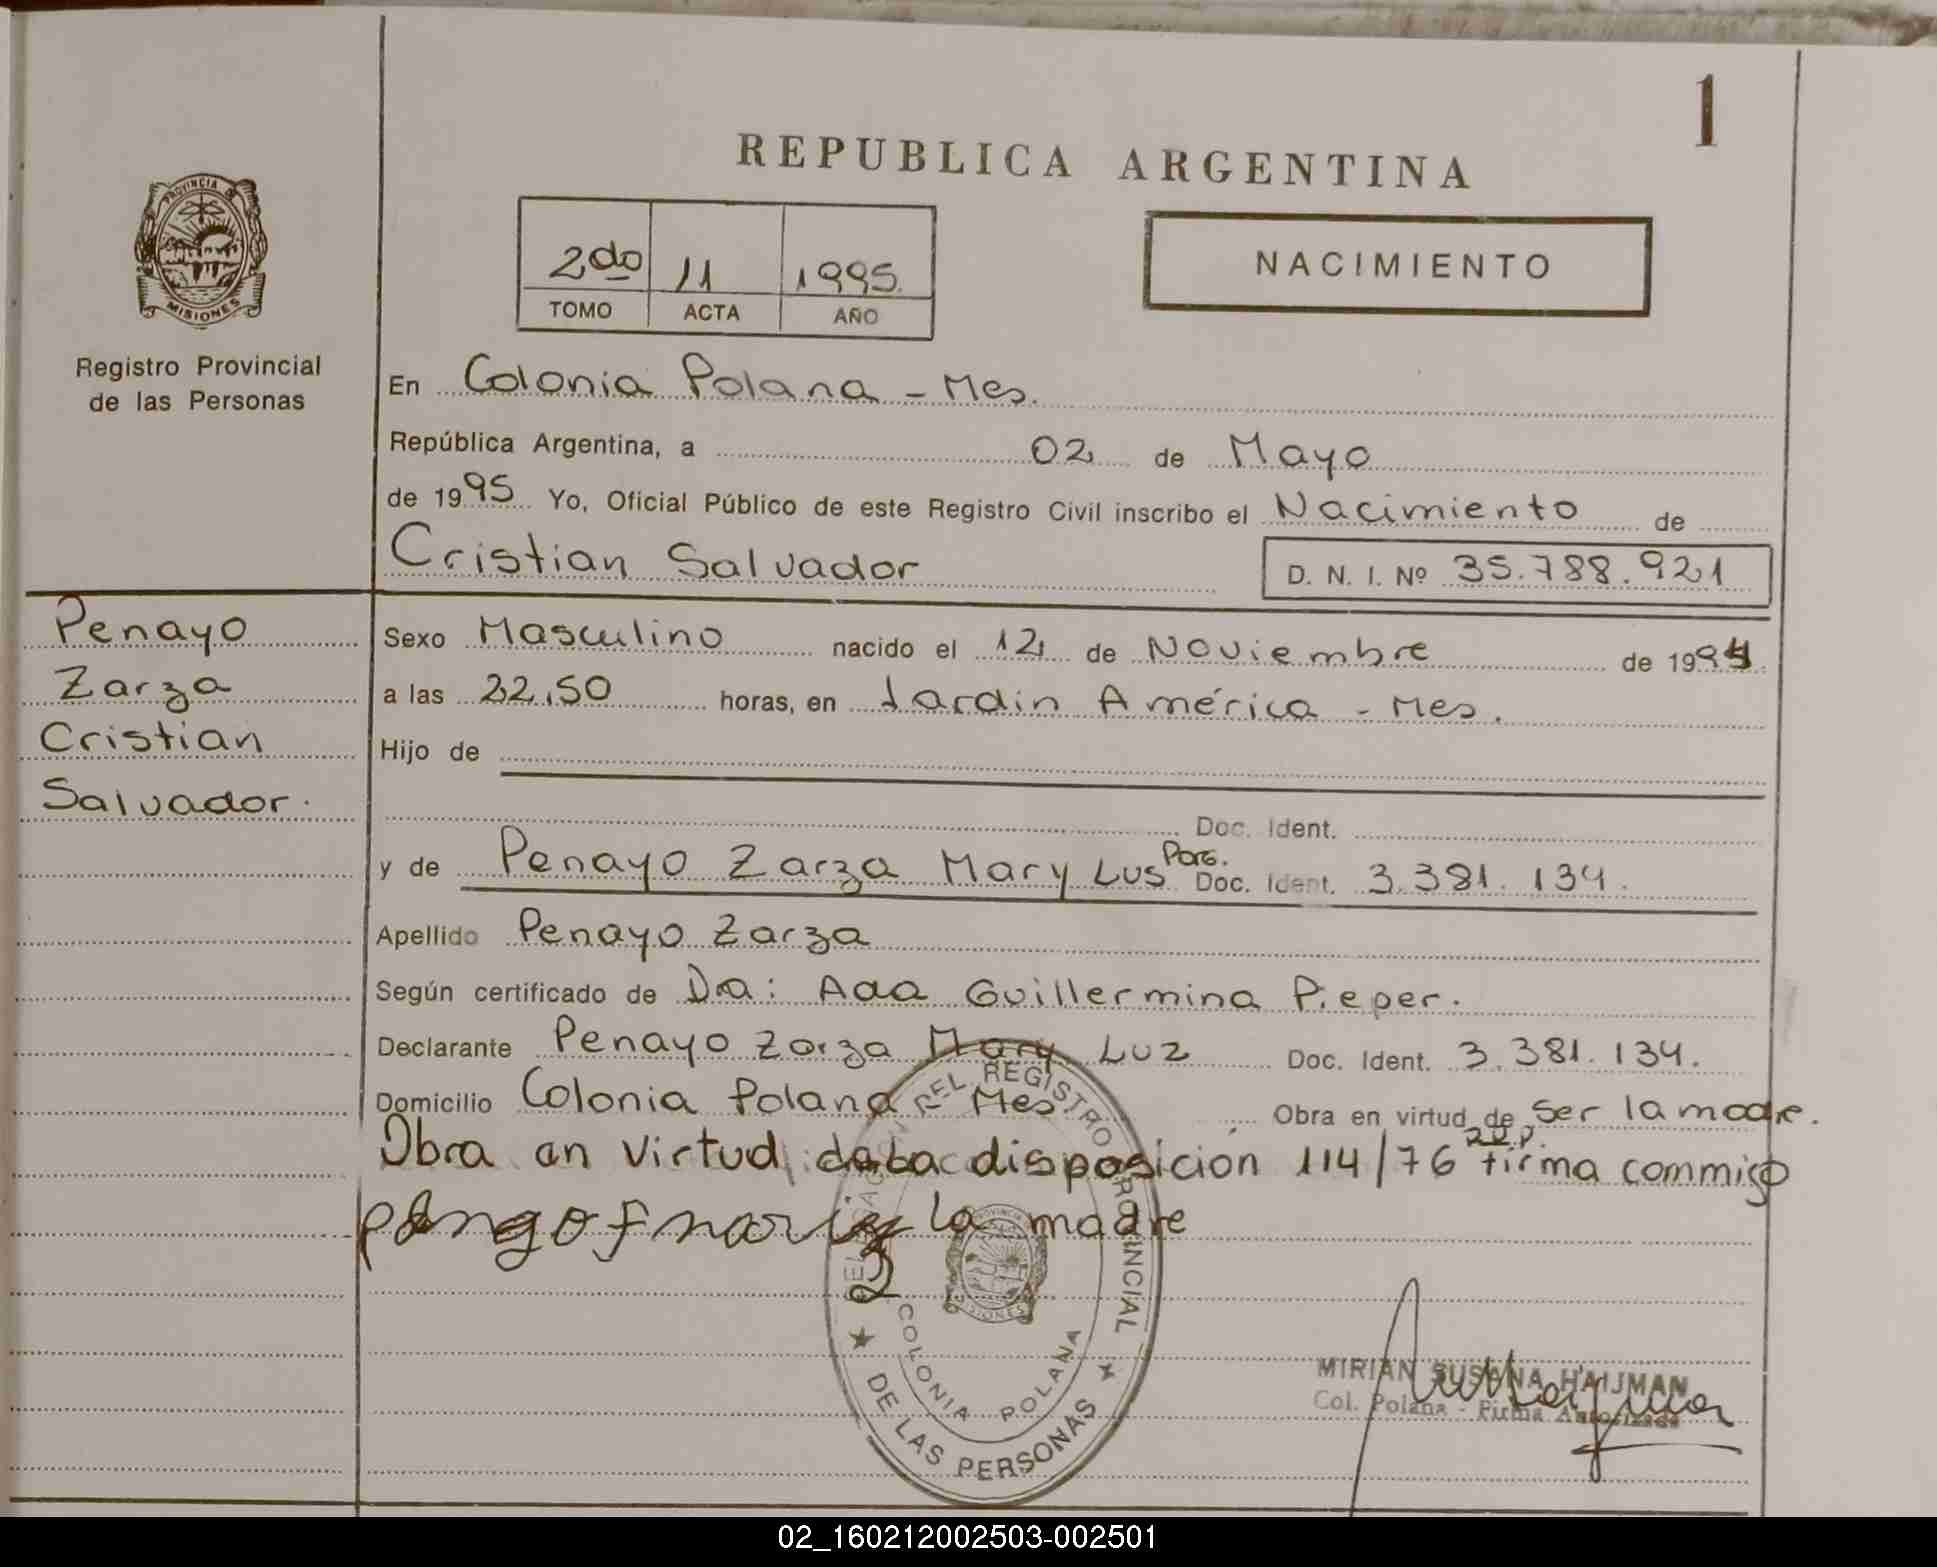 1
REPUBLICA ARGENTINA
PROVINCIA DE
MISIONES
Registro Provincial
de las Personas
2do 11 1995
TOMO ACTA AÑO
NACIMIENTO
En Colonia Polana - Mes.
República Argentina, a 02 de Mayo
de 1995 Yo, Oficial Público de este Registro Civil inscribo el Nacimiento de
Cristian Salvador D. N. I. Nº 35.788.921
Penayo
Zarza
Cristian
Salvador.
Sexo Masculino nacido el 12 de Noviembre de 1994
a las 22,50 horas, en Jardin América - Mes.
Hijo de
Doc. Ident.
y de Penayo Zarza Mary Lus Doc. Ident. 3.381.134.
Apellido Penayo Zarza
Según certificado de Dra: Ada Guillermina Pieper.
Declarante Penayo Zarza Mary Luz Doc. Ident. 3.381.134.
Domicilio Colonia Polana - Mes. Obra en virtud de Ser la madre.
Obra en virtud de la disposición 114/76 firma commigo
la madre
DEL REGISTRO PROVINCIAL
DE LAS PERSONAS
COLONIA POLANA
MIRIAN SUSANA HAIJMAN
Col. Polana - Firma Autorizada
02_160212002503-002501